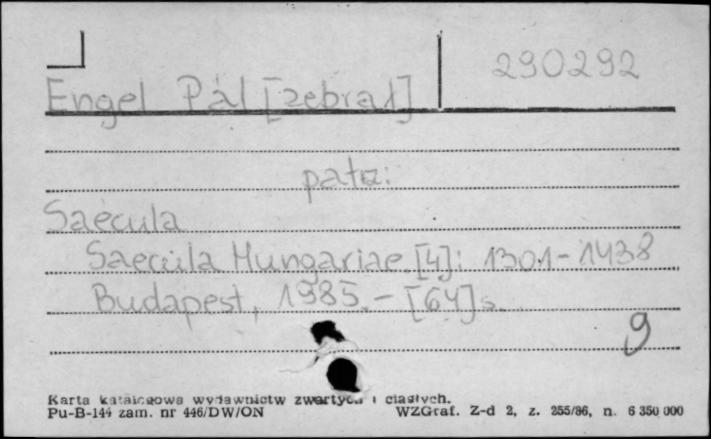 290292
Engel Pál [zebrał]
patrz:
Saecula
Saecula Hungariae. [4]: 1301-1438
Budapest, 1985. - [64] s.
9
Karta katalogowa wydawnictw zwartych i ciągłych.
Pu-B-144 zam. nr 446/DW/ON WZGraf. Z-d 2, z. 255/86, n. 6 350 000